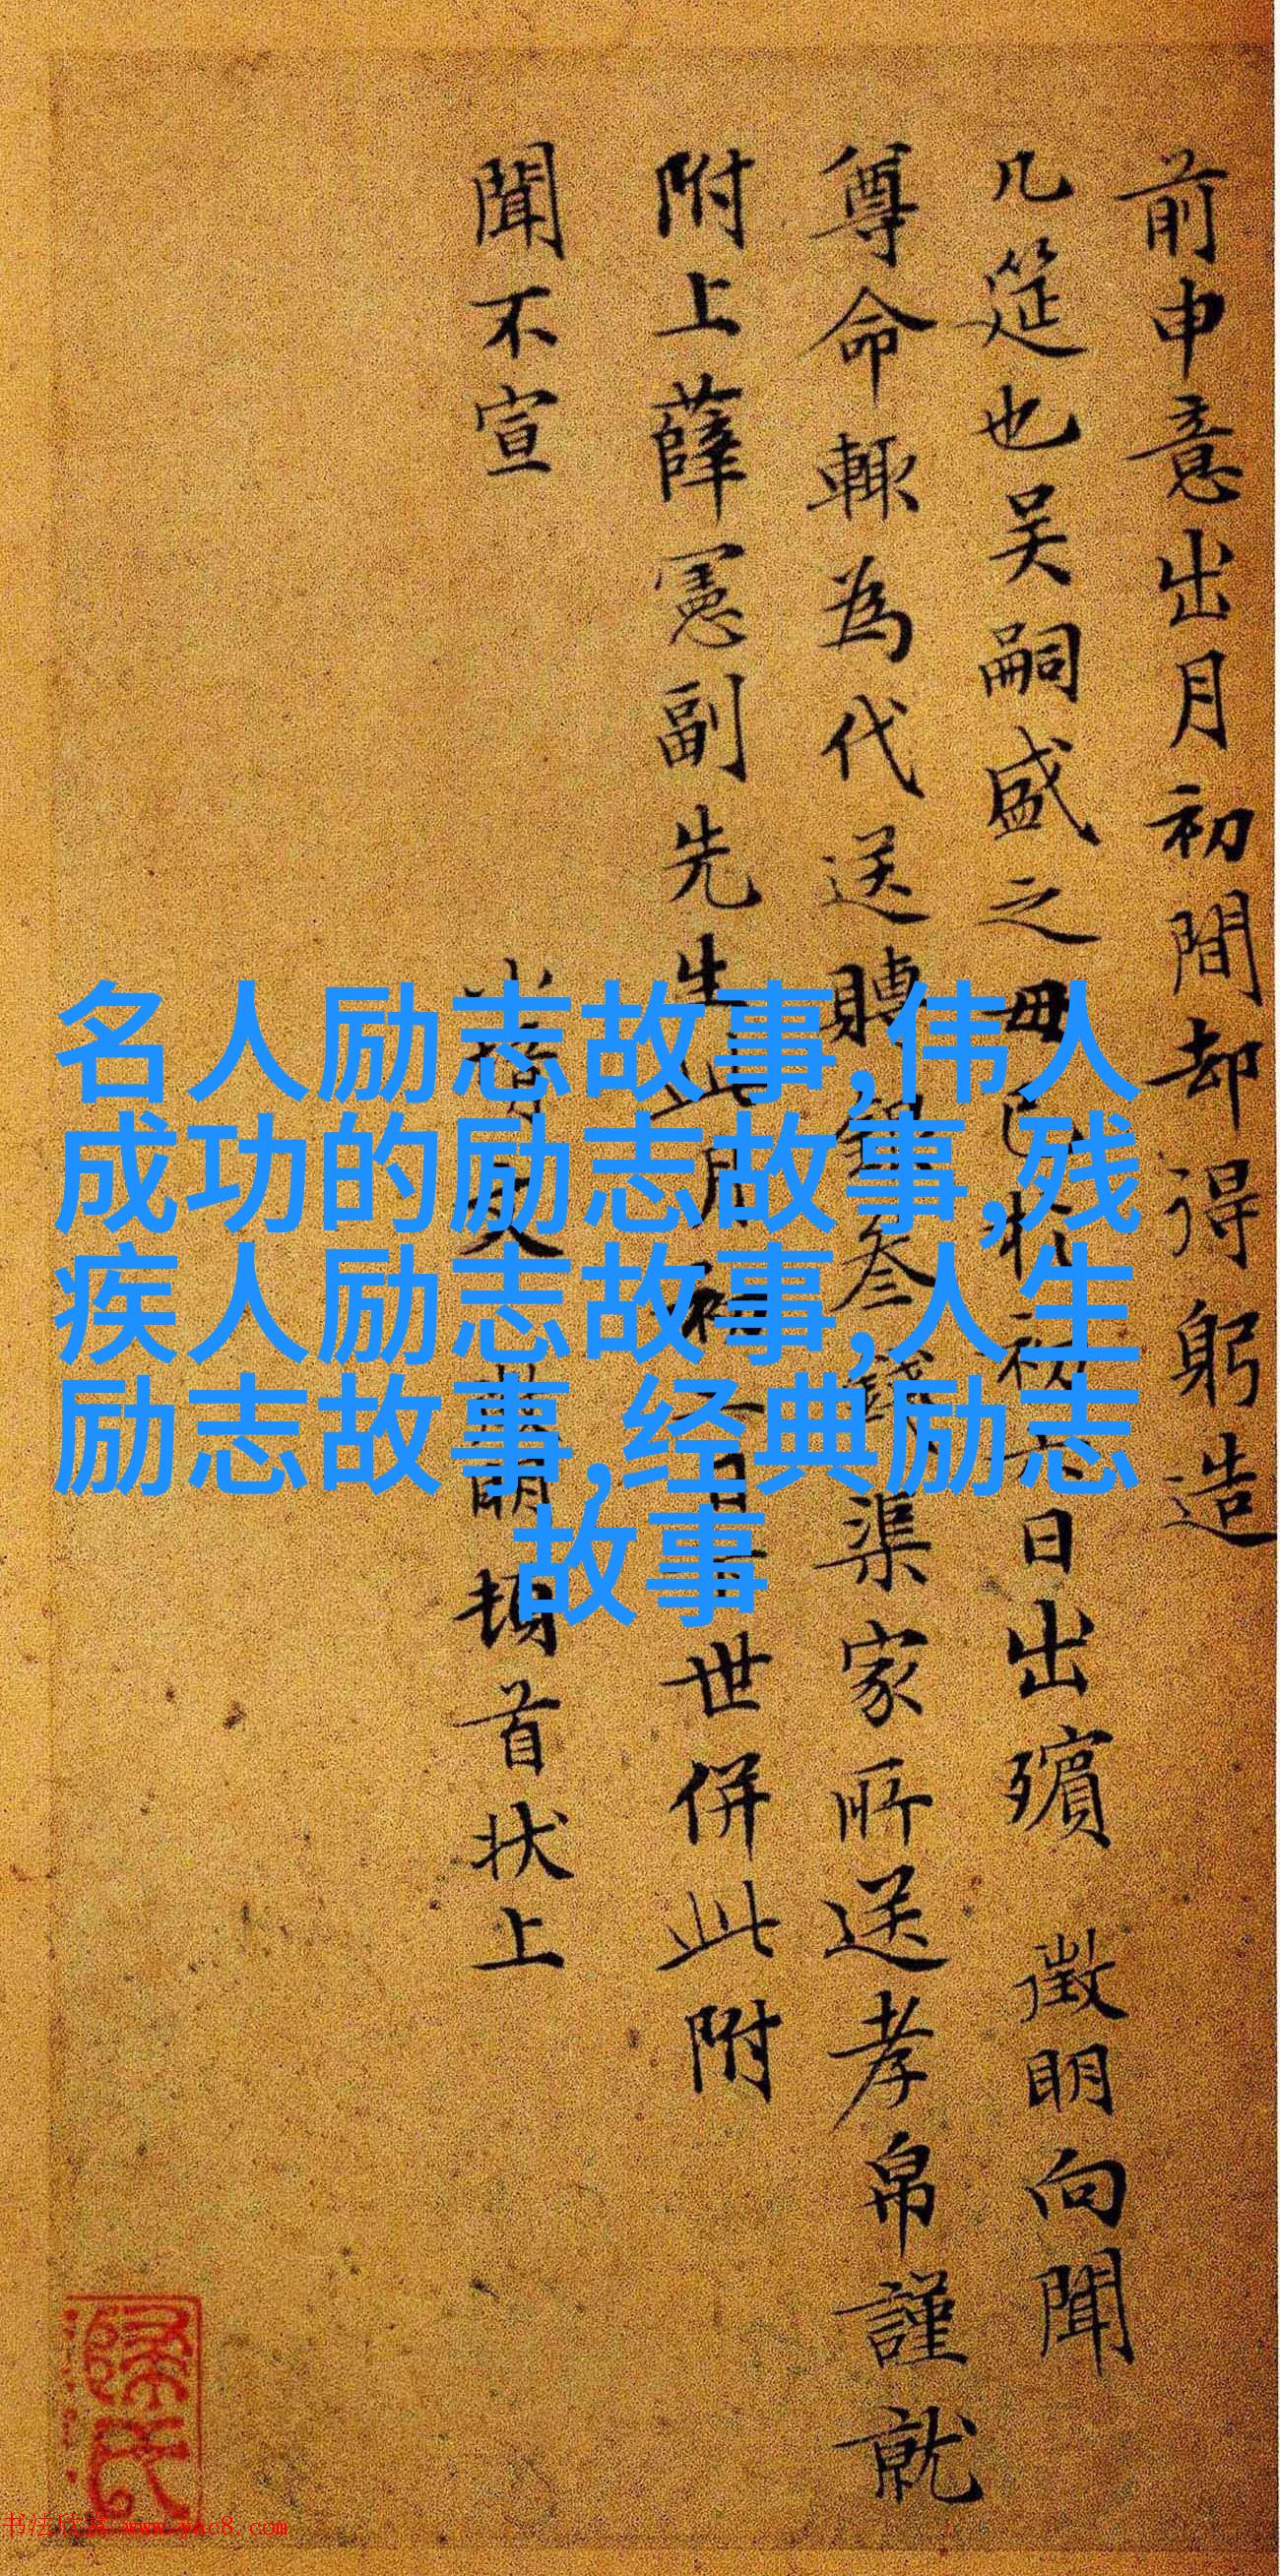 前申意出月初間却得躬造
几筵也吴嗣盛之毋已於初六日出殯 徵明向聞
尊命輒為代送賻銀叁錢渠家所送孝帛謹就
附上薛憲副先生此月初二日世併此附
聞不宣
頓首狀上
名人励志故事,伟人
成功的励志故事,残
疾人励志故事,人生
励志故事,经典励志
故事
书法欣赏 www.yac8.com